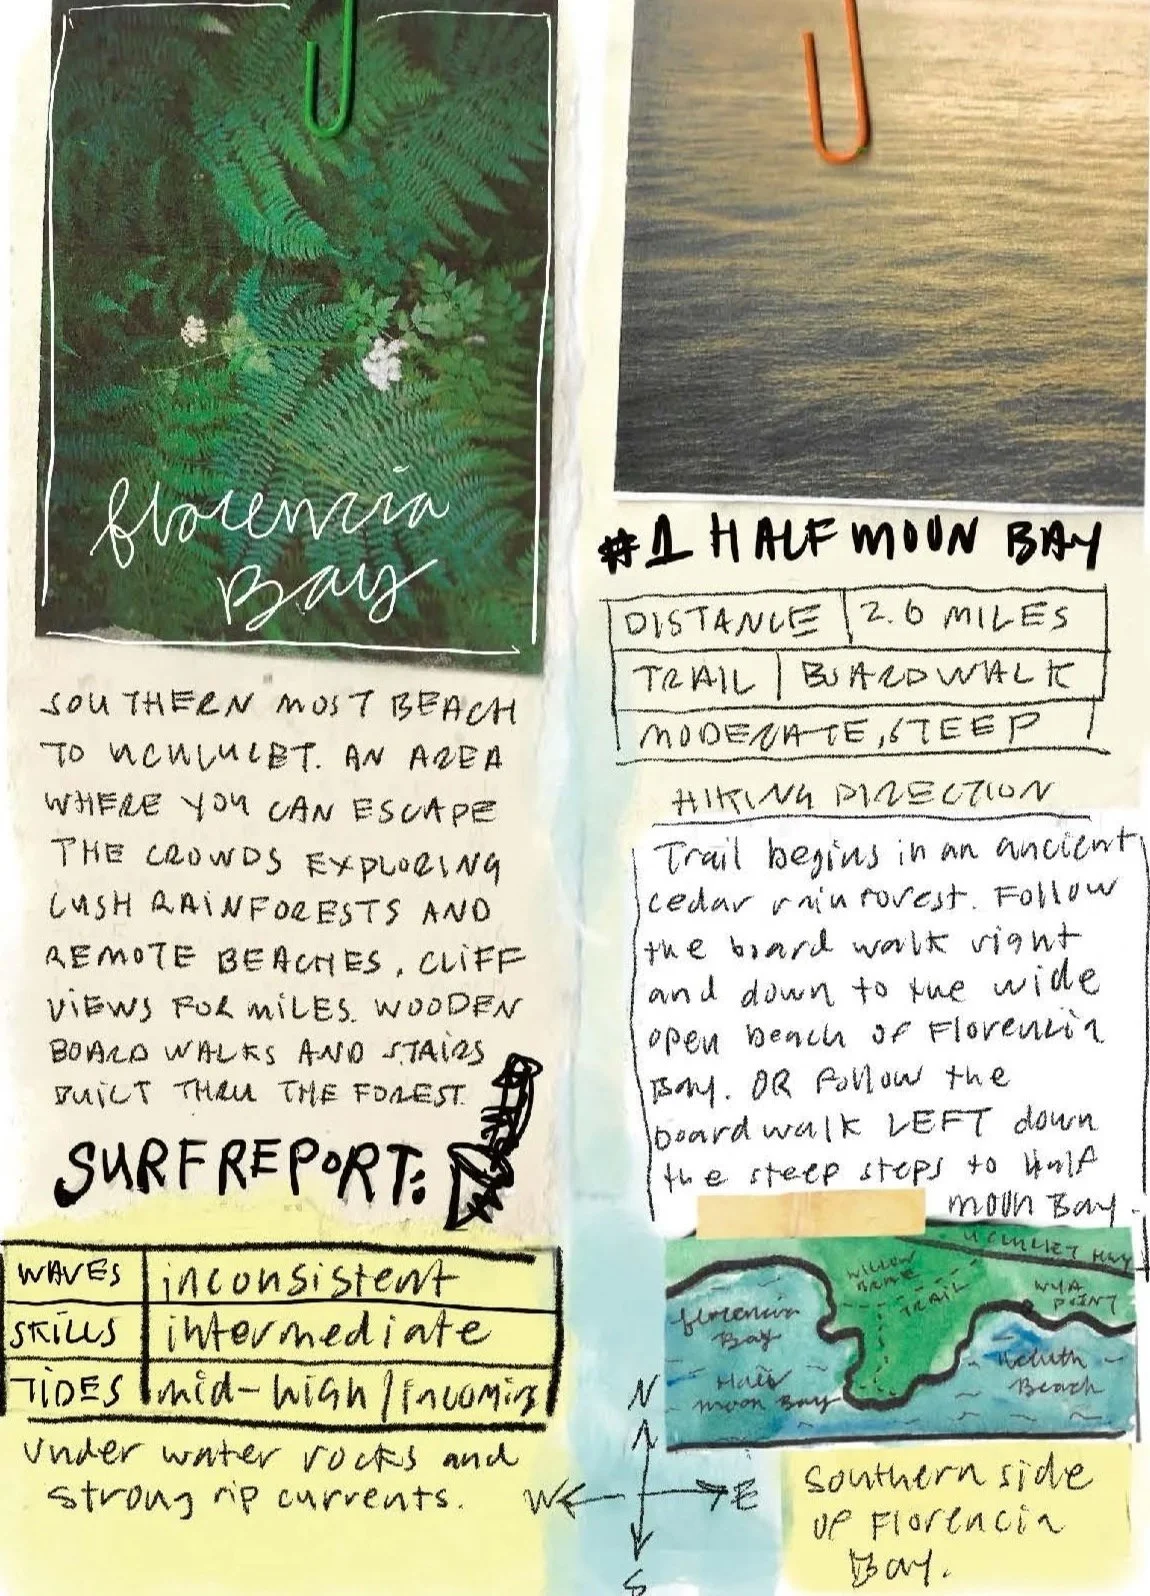 florencia
Bay
SOUTHERN MOST BEACH
TO UCULULET. AN AREA
WHERE YOU CAN ESCAPE
THE CROWDS EXPLORING
LUSH RAINFORESTS AND
REMOTE BEACHES, CLIFF
VIEWS FOR MILES. WOODEN
BOARD WALKS AND STAIRS
BUILT THRU THE FOREST.
SURF REPORT:
WAVES inconsistent
SKILLS intermediate
TIDES mid-high/incoming
Under water rocks and
strong rip currents.
#1 HALF MOON BAY
DISTANCE 2.6 MILES
TRAIL BOARDWALK
MODERATE, STEEP
HIKING DIRECTION
Trail begins in an ancient
cedar rain forest. Follow
the board walk right
and down to the wide
open beach of Florencia
Bay. OR Follow the
boardwalk LEFT down
the steep steps to Half
moon Bay.
UCLULET HWY
WILLOW
TRAIL
WYA
POINT
florencia
Bay
Half
moon Bay
Beach
N
W E
S
Southern side
of Florencia
Bay.